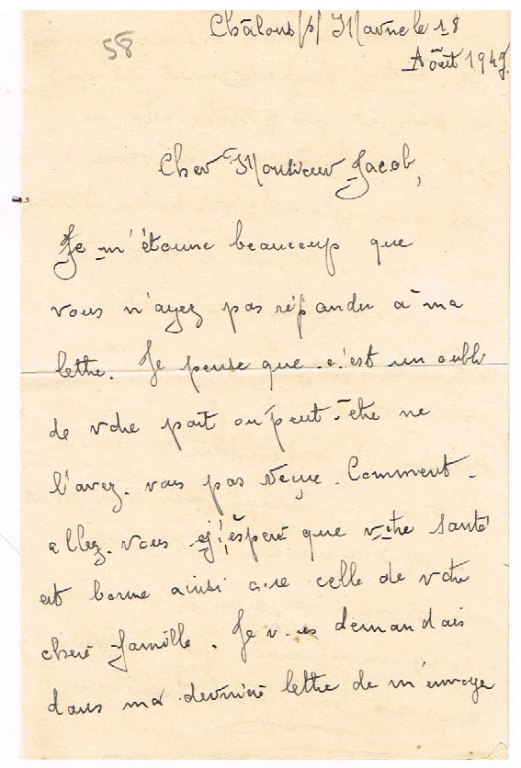 58
Châlons s/ Marne le 18
Août 1947.
Cher Monsieur Jacob,
Je m'étonne beaucoup que
vous n'ayez pas répondu à ma
lettre. Je pense que c'est un oubli
de votre part ou peut-être ne
l'avez-vous pas reçue. Comment-
allez-vous j'espère que votre santé
est bonne ainsi que celle de votre
chère famille. Je vous demandais
dans ma dernière lettre de m'envoye